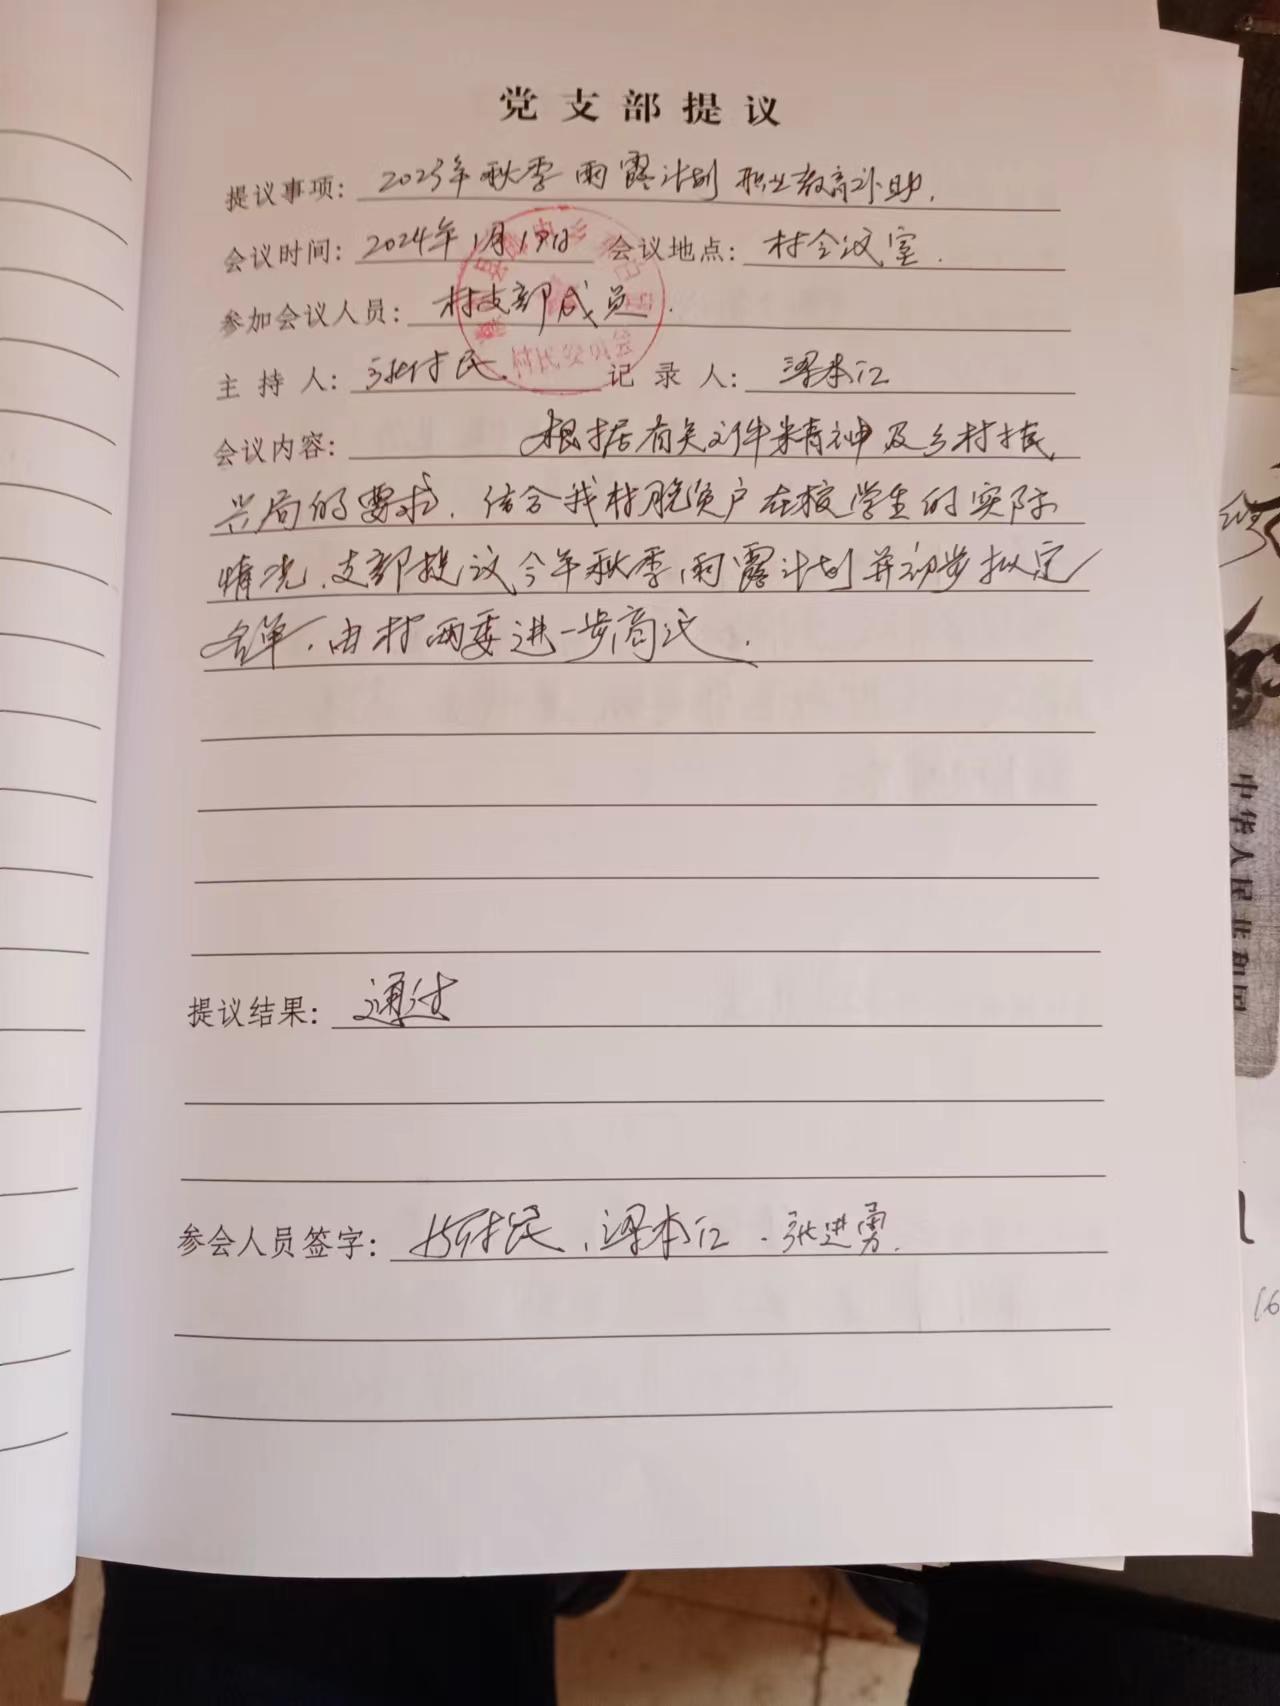 党支部提议
提议事项：2023年秋季雨露计划职业教育补助.
会议时间：2024年1月19日 会议地点：村会议室.
参加会议人员：村支部成员.
主持人：张村民. 记录人：梁本江
会议内容：根据有关文件精神及乡村振
兴局的要求.结合我村脱贫户在校学生的实际
情况.支部提议今年秋季雨露计划并初步拟定
名单.由村两委进一步商议.
提议结果：通过
参会人员签字：村民、梁本江.张进勇.
村民委员会
中华人民共和国
16